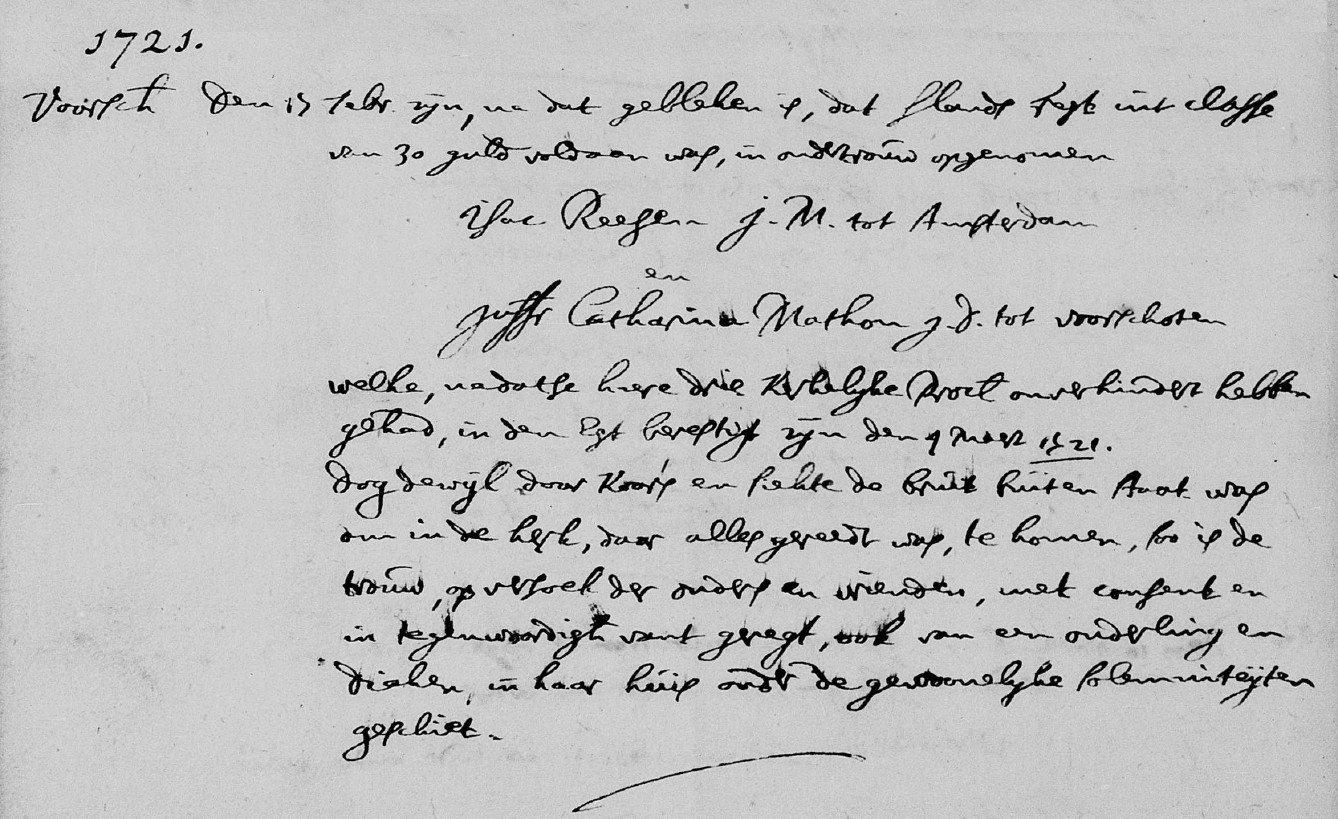 1721.
Voorsch. Den 15 Febr. zyn, na dat gebleken is, dat s'lands regt int classe
van 30 guld voldaan was, in ondertrouw opgenomen
Isac Reessen j. M. tot Amsterdam
en
juffr Catharina Mathon j. d. tot voorschoten
welke, nadatse hare drie Kerkelyke Procl. onverhindert hebben
gehad, in den Egt bevestigt zyn den 9 Maert 1721.
dog dewyl door Koors en siekte de bruit buiten staat was
om in de kerk, daar alles gereedt was, te komen, soo is de
trouw, op versoek der ouders en vrienden, met consent en
in tegenwoordigh. vant geregt, ook van een ouderling en
diaken, in haar huis onder de gewoonelyke solemniteijten
geschiet.